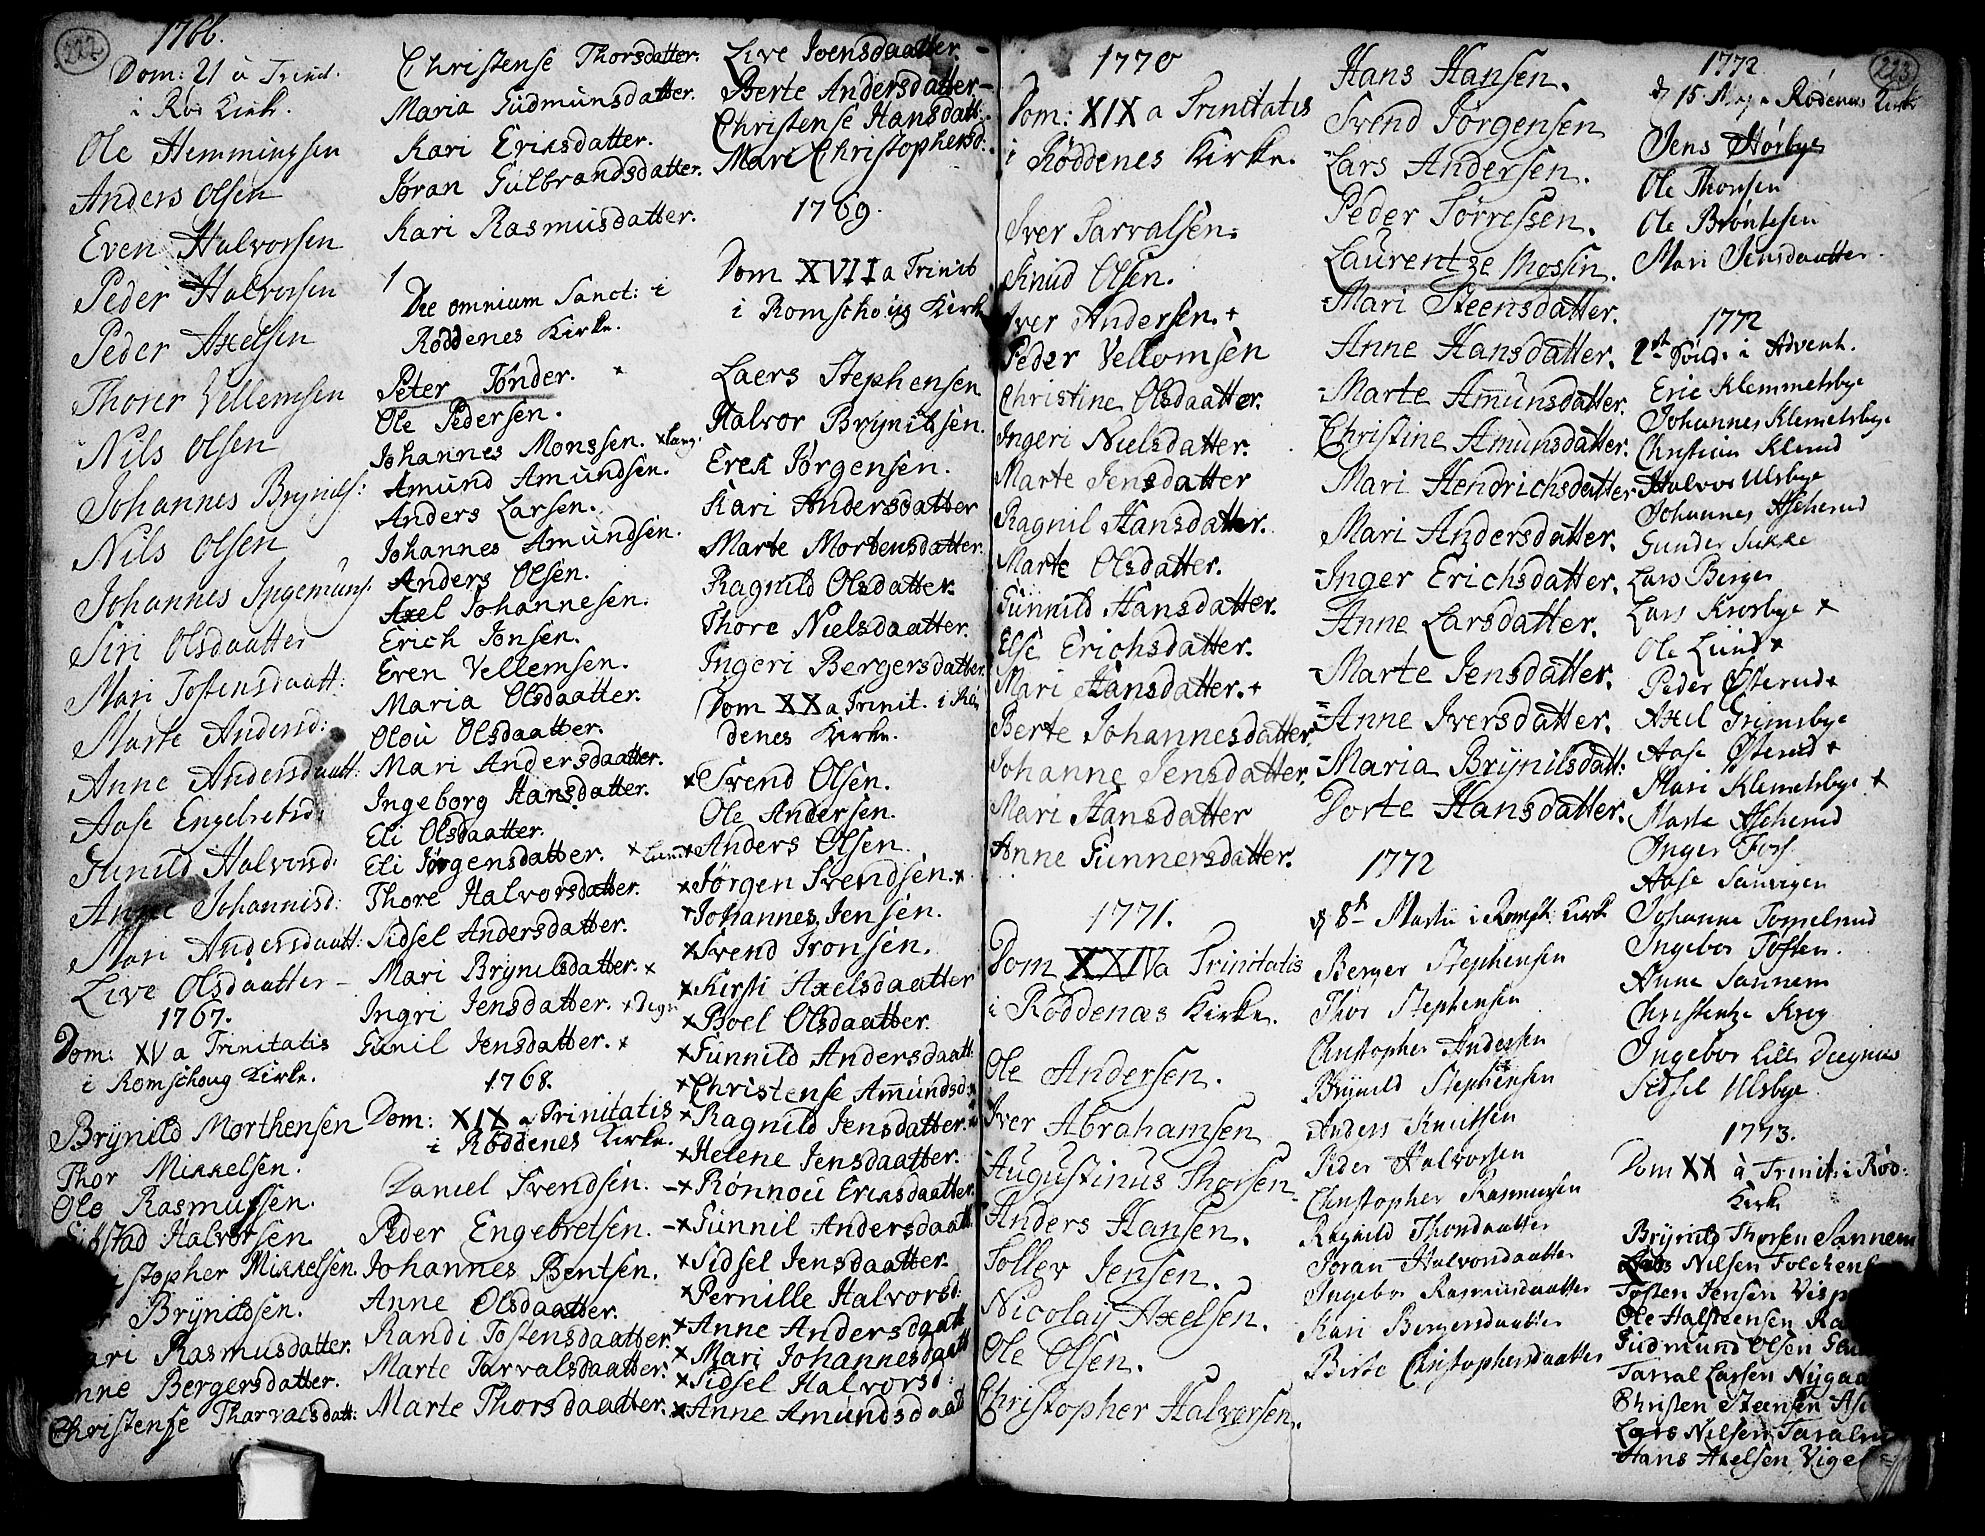 222.
1766.
Dom: 21 a Trinit.
i Rød Kirke.
Ole Hemmingsen
Anders Olsen
Even Halvorsen
Peder Halvorsen
Peder Axelsen
Thorer Vellemsen
Nils Olsen
Johannes Brynils:
Nils Olsen
Johannes Ingemuns.
Siri Olsdaatter
Mari Tostensdaatt:
Marte Andersd:
Anne Andersdaatt:
Aase Engebretsd:
Gunild Halvorsd.
Anne Johannisd:
Mari Andersdaatt:
Live Olsdaatter -
1767.
Dom: XV a Trinitatis
i Romschoug Kirke.
Brÿnild Morthensen
Thor Mikkelsen.
Ole Rasmussen.
Halvorsen.
stopher Mikkelsen.
Brÿnildsen.
ari Rasmusdatter.
nne Bergersdatter.
Christense Tharvalsdatt:
Christense Thorsdatter.
Maria Gudmunsdatter.
Kari Eriksdatter.
Jøran Gulbrandsdatter.
Kari Rasmusdatter.
Die omnium Sanct: i
Røddenes Kirke.
Peter Tønder. ×
Ole Pedersen.
Johannes Monssen. ×lang.
Amund Amundsen.
Anders Larsen.
Johannes Amundsen.
Anders Olsen.
Axel Johannesen.
Erich Jonsen.
Even Vellemsen.
Maria Olsdaatter.
Olou Olsdaatter.
Mari Andersdaatter.
Ingeborg Hansdatter.
Eli Olsdaatter.
Eli Jørgensdatter. ×
Thore Halvorsdatter.
Sidsel Andersdatter.
Mari Brÿnilsdatter. ×
Ingri Jensdatter. ×
Gunil Jensdatter. ×
1768.
Dom: XIX a Trinitatis
i Røddenes Kirke.
Daniel Svendsen.
Peder Engebretsen.
Johannes Bentsen.
Anne Olsdaatter.
Randi Tostensdaatter.
Marte Tarvalsdaatter.
Marte Thorsdaatter.
Live Joensdaatter. -
Berte Andersdatter -
Christense Hansdatt:
Mari Christophersd:
1769.
Dom XVII a Trinit
i Romschoug Kirk
Laers Stephensen
Halvor Brÿnildsen.
Erek Jørgensen.
Kari Andersdatter
Marte Mortensdatter.
Ragnild Olsdatter.
Thore Nielsdaatter.
Ingeri Bergersdatter
Dom XX a Trinit. i Rø
denes Kirke.
×Svend Olsen.
Ole Andersen.
×Anders Olsen.
×Jørgen Svendsen.×
×Johannes Jensen.
×Svend Tronsen.
×Kirsti Axelsdaatter
×Boel Olsdaatter.
×Gunnild Andersdaatt.
×Christense Amundsd:
×Ragnild Jensdatter.
×Helene Jensdaatter.
-×Rønnou Eriksdaatter.
-×Gunnil Andersdaatt.
×Sidsel Jensdaatter.
×Pernille Halvorsd:
×Anne Andersdaatt
×Mari Johannesdaatt
×Sidsel Halvorsd:
×Anne Amundsdaatt
1770
Dom: XIX a Trinitatis
i Røddenes Kirke.
Iver Tarvalsen.
Knud Olsen.
Iver Andersen. +
Peder Vellomsen
Christine Olsdaatter.
Ingeri Nielsdatter.
Marte Jensdatter
Ragnil Hansdatter.
Marte Olsdatter.
Gunnild Hansdatter.
Else Erichsdatter.
Mari Hansdatter. +
Berte Johannesdatter.
Johanne Jensdatter.
Mari Hansdatter
Anne Gunnersdatter.
1771.
Dom XXIV a Trinitatis
i Røddenæs Kirke.
Ole Andersen.
Iver Abrahamsen
Augustinus Thorsen.
Anders Hansen.
Tollev Jensen.
Nicolaÿ Axelsen.
Ole Olsen.
Christopher Halvorsen.
Hans Hansen.
Svend Jørgensen
Lars Andersen.
Peder Sørressen.
Laurentze Mossin.
Mari Steensdatter.
Anne Hansdatter.
Marte Amunsdatter.
Christine Amunsdatter.
Mari Hendrichsdatter
Mari Andersdatter.
Inger Erichsdatter.
Anne Larsdatter.
Marte Jensdatter.
Anne Iversdatter.
Maria Brÿnilsdatt:
Dorte Hansdatter.
1772
d 8de Martii i Romsk: Kirke
Berger Stephensen
Thor Stephensen
Christopher Andersen
Brÿnild Stephensen
Anders Knutsen
Peder Halvorsen
Christopher Rasmusen
Ragnild Thorsdaatter
Jøran Halvorsdaatter
Ingebor Rasmusdaatter
Kari Bergersdaatter
Birte Christophersdaatter
223
1772
d 15 Mai Rødenes Kirke
Jens Hørbye
Ole Thorsen
Ole Brøntesen
Mari Jensdaatter.
1772
Sønd: i Advent.
Eric Klemmetsbye
Johannes Klemetsbye
Christian Klerud
Halvor Ulsbye
Johannes Ascherud
Gunder Sukke
Lars Berger
Lars Krosbye ×
Ole Lund ×
Peder Østerud ×
Axel Grimsbye
Aase Østerud ×
Mari Klemetsbye ×
Marte Ascherud
Inger Foss
Aase Sanvigen
Johanne Tomelrud
Ingebor Toften.
Anne Sannem
Christentze Krog
Ingebor Lille Degnes
Sidsel Ulsbye
1773.
Dom XX a Trinit: i Rød:
Kirke
Brÿnild Thorsen Sannem
Nilsen Folchen
Tosten Jensen Visp
Ole Halsteensen Ra
Gudmund Olsen
Tarral Larsen Nÿgaa
Christen Steensen As
Lars Nilsen Taraln
Hans Axelsen Viger